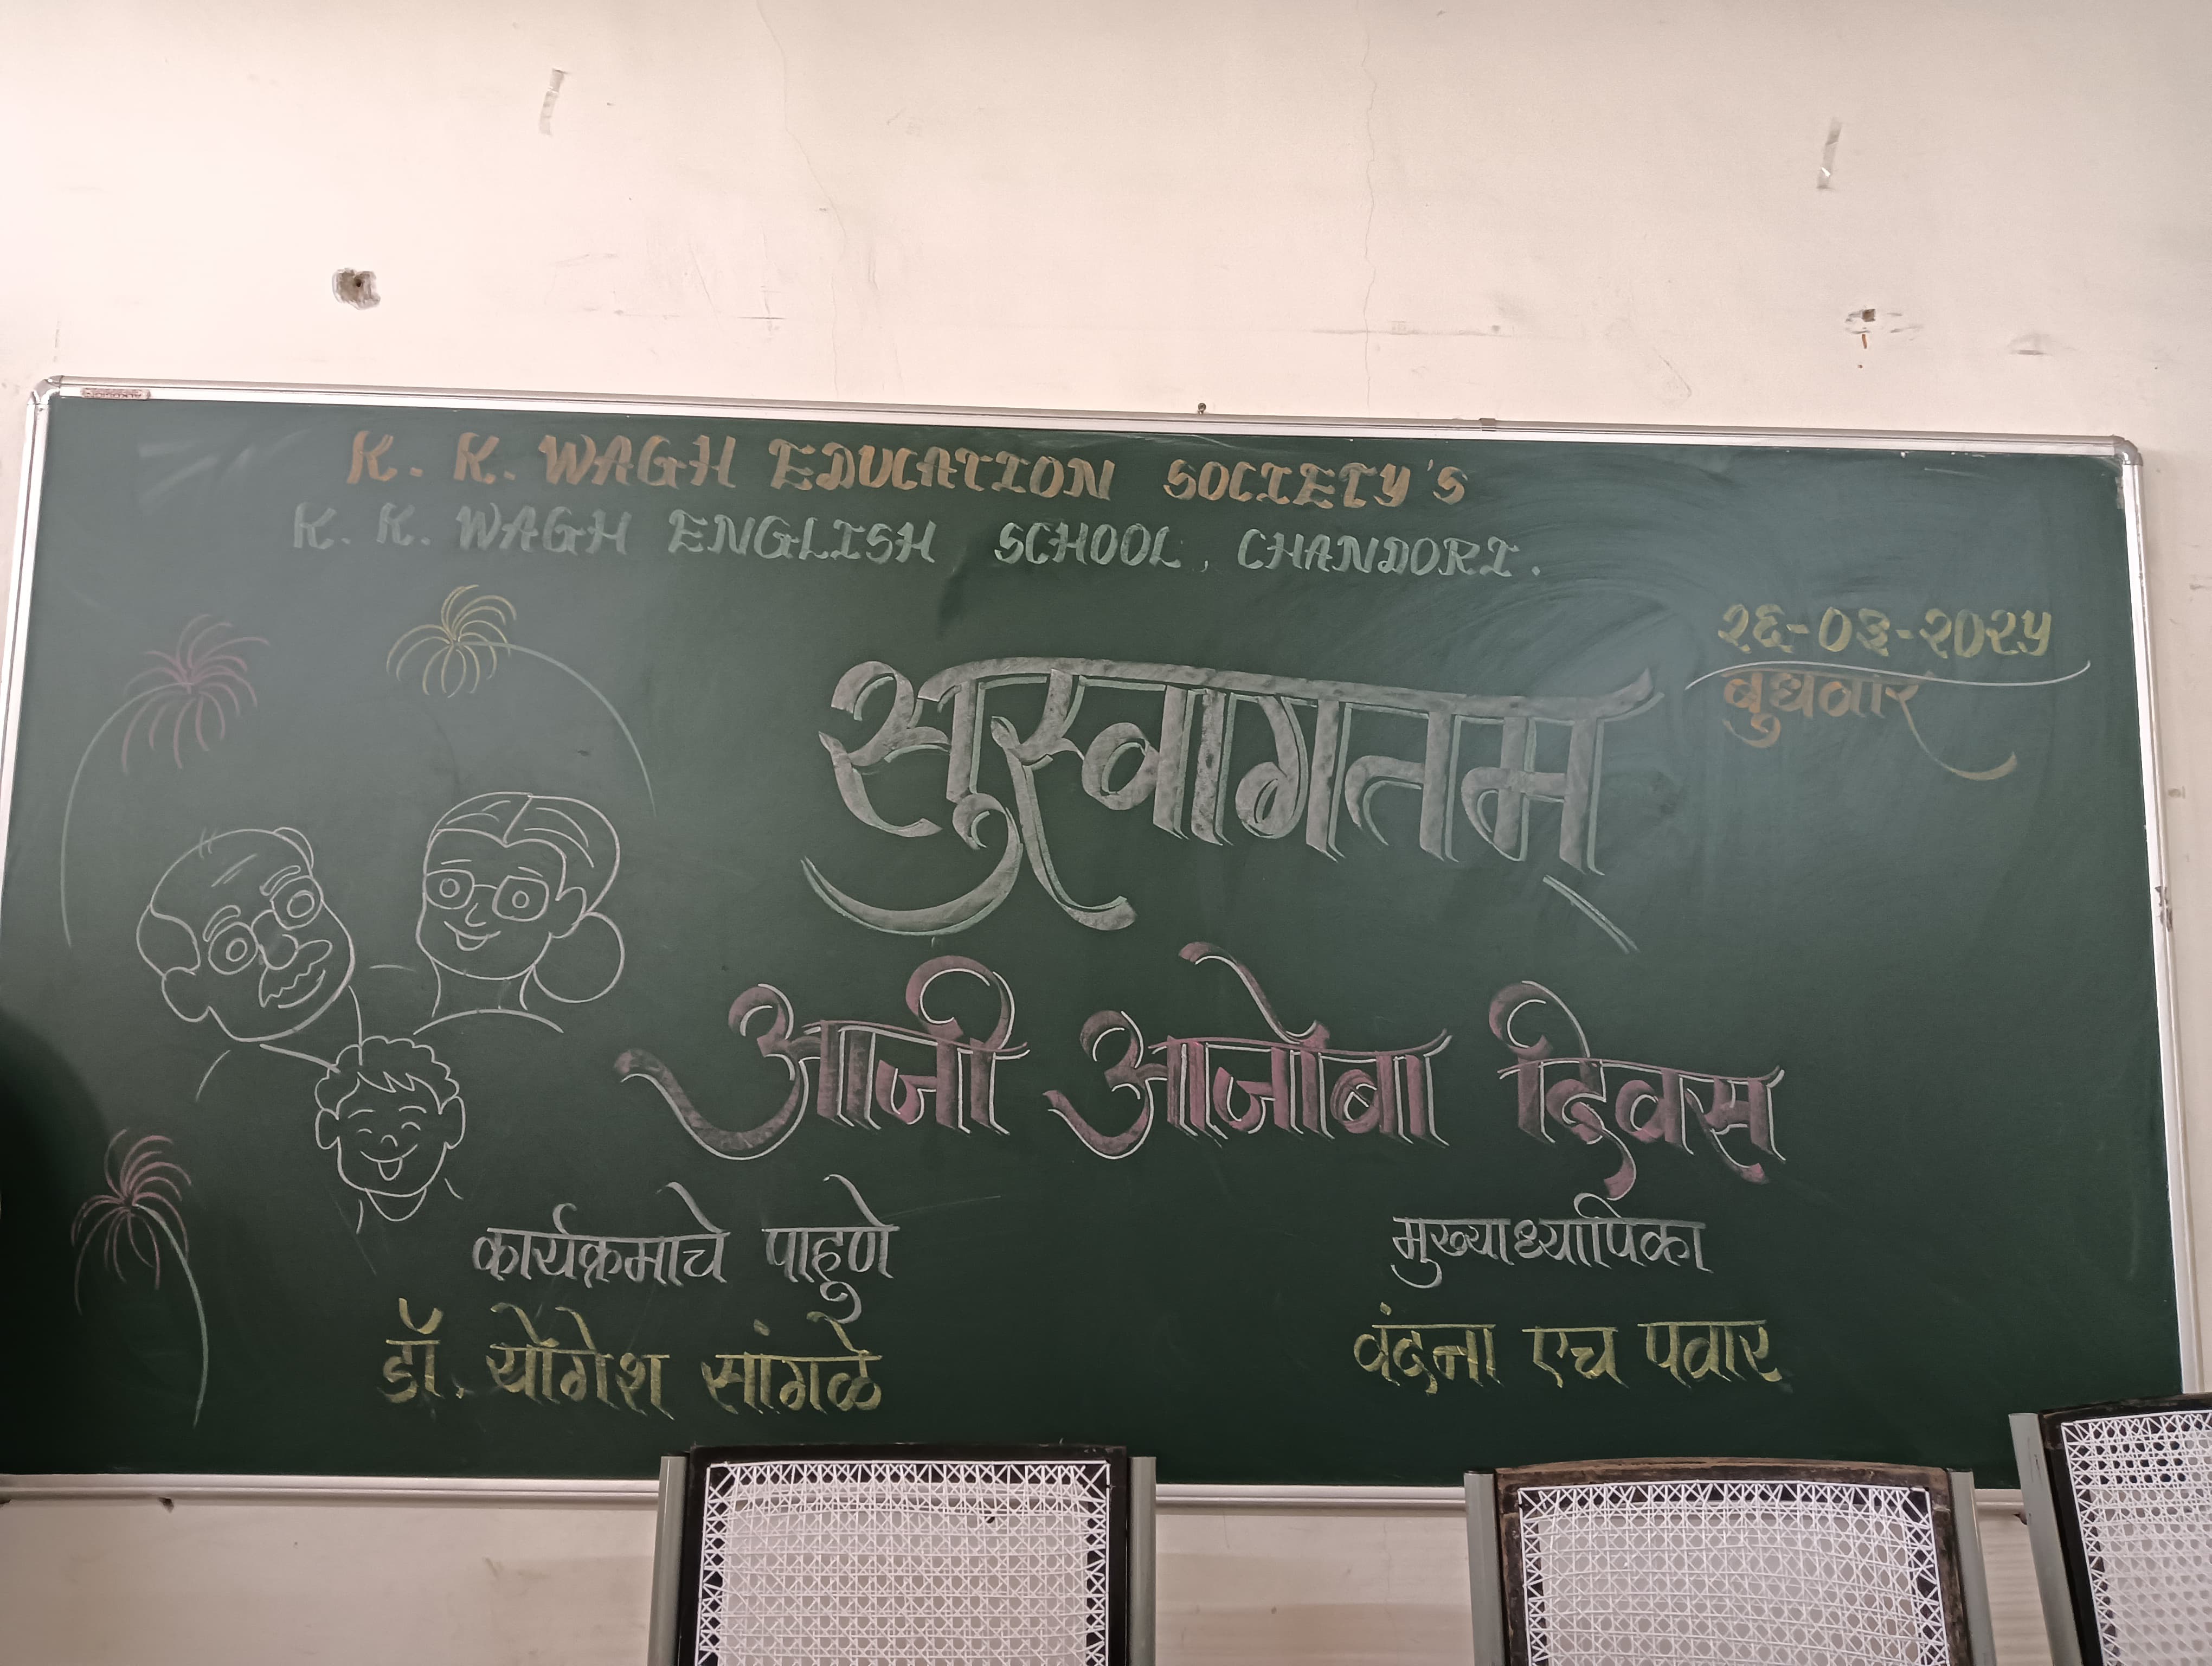 K. K. WAGH EDUCATION SOCIETY'S
K. K. WAGH ENGLISH SCHOOL, CHANDORI.
२६-०३-२०२५
बुधवार
सुस्वागतम्
आजी आजोबा दिवस
कार्यक्रमाचे पाहूणे
डॉ. योगेश सांगळे
मुख्याध्यापिका
वंदना एच पवार